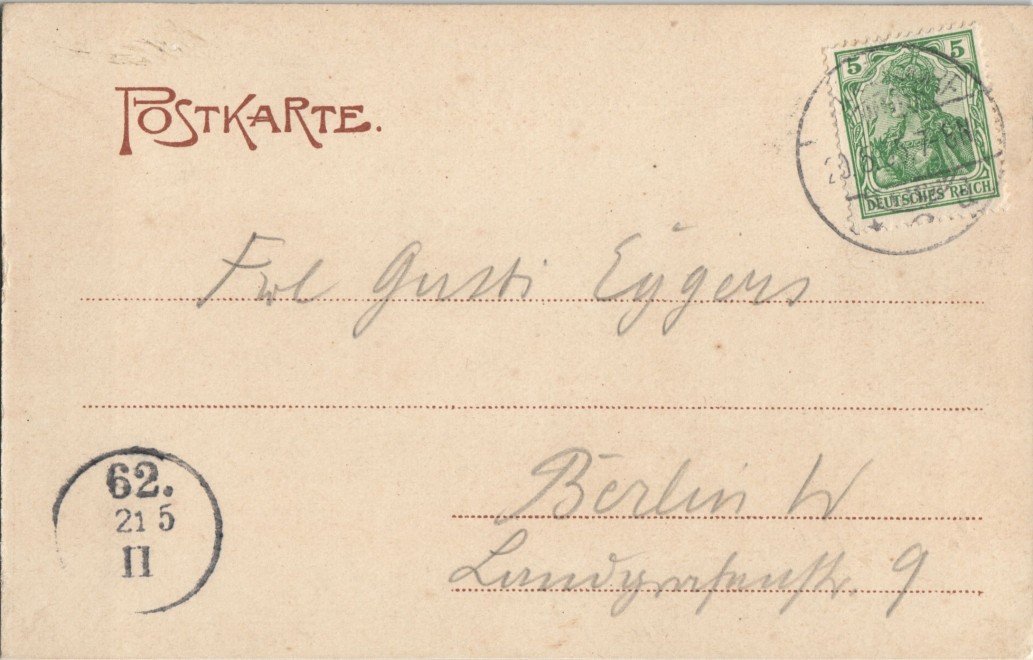 POSTKARTE.
5 5
DEUTSCHES REICH
Frl Gusti Eggers
Berlin W
Landgrafenstr. 9
62.
21 5
II